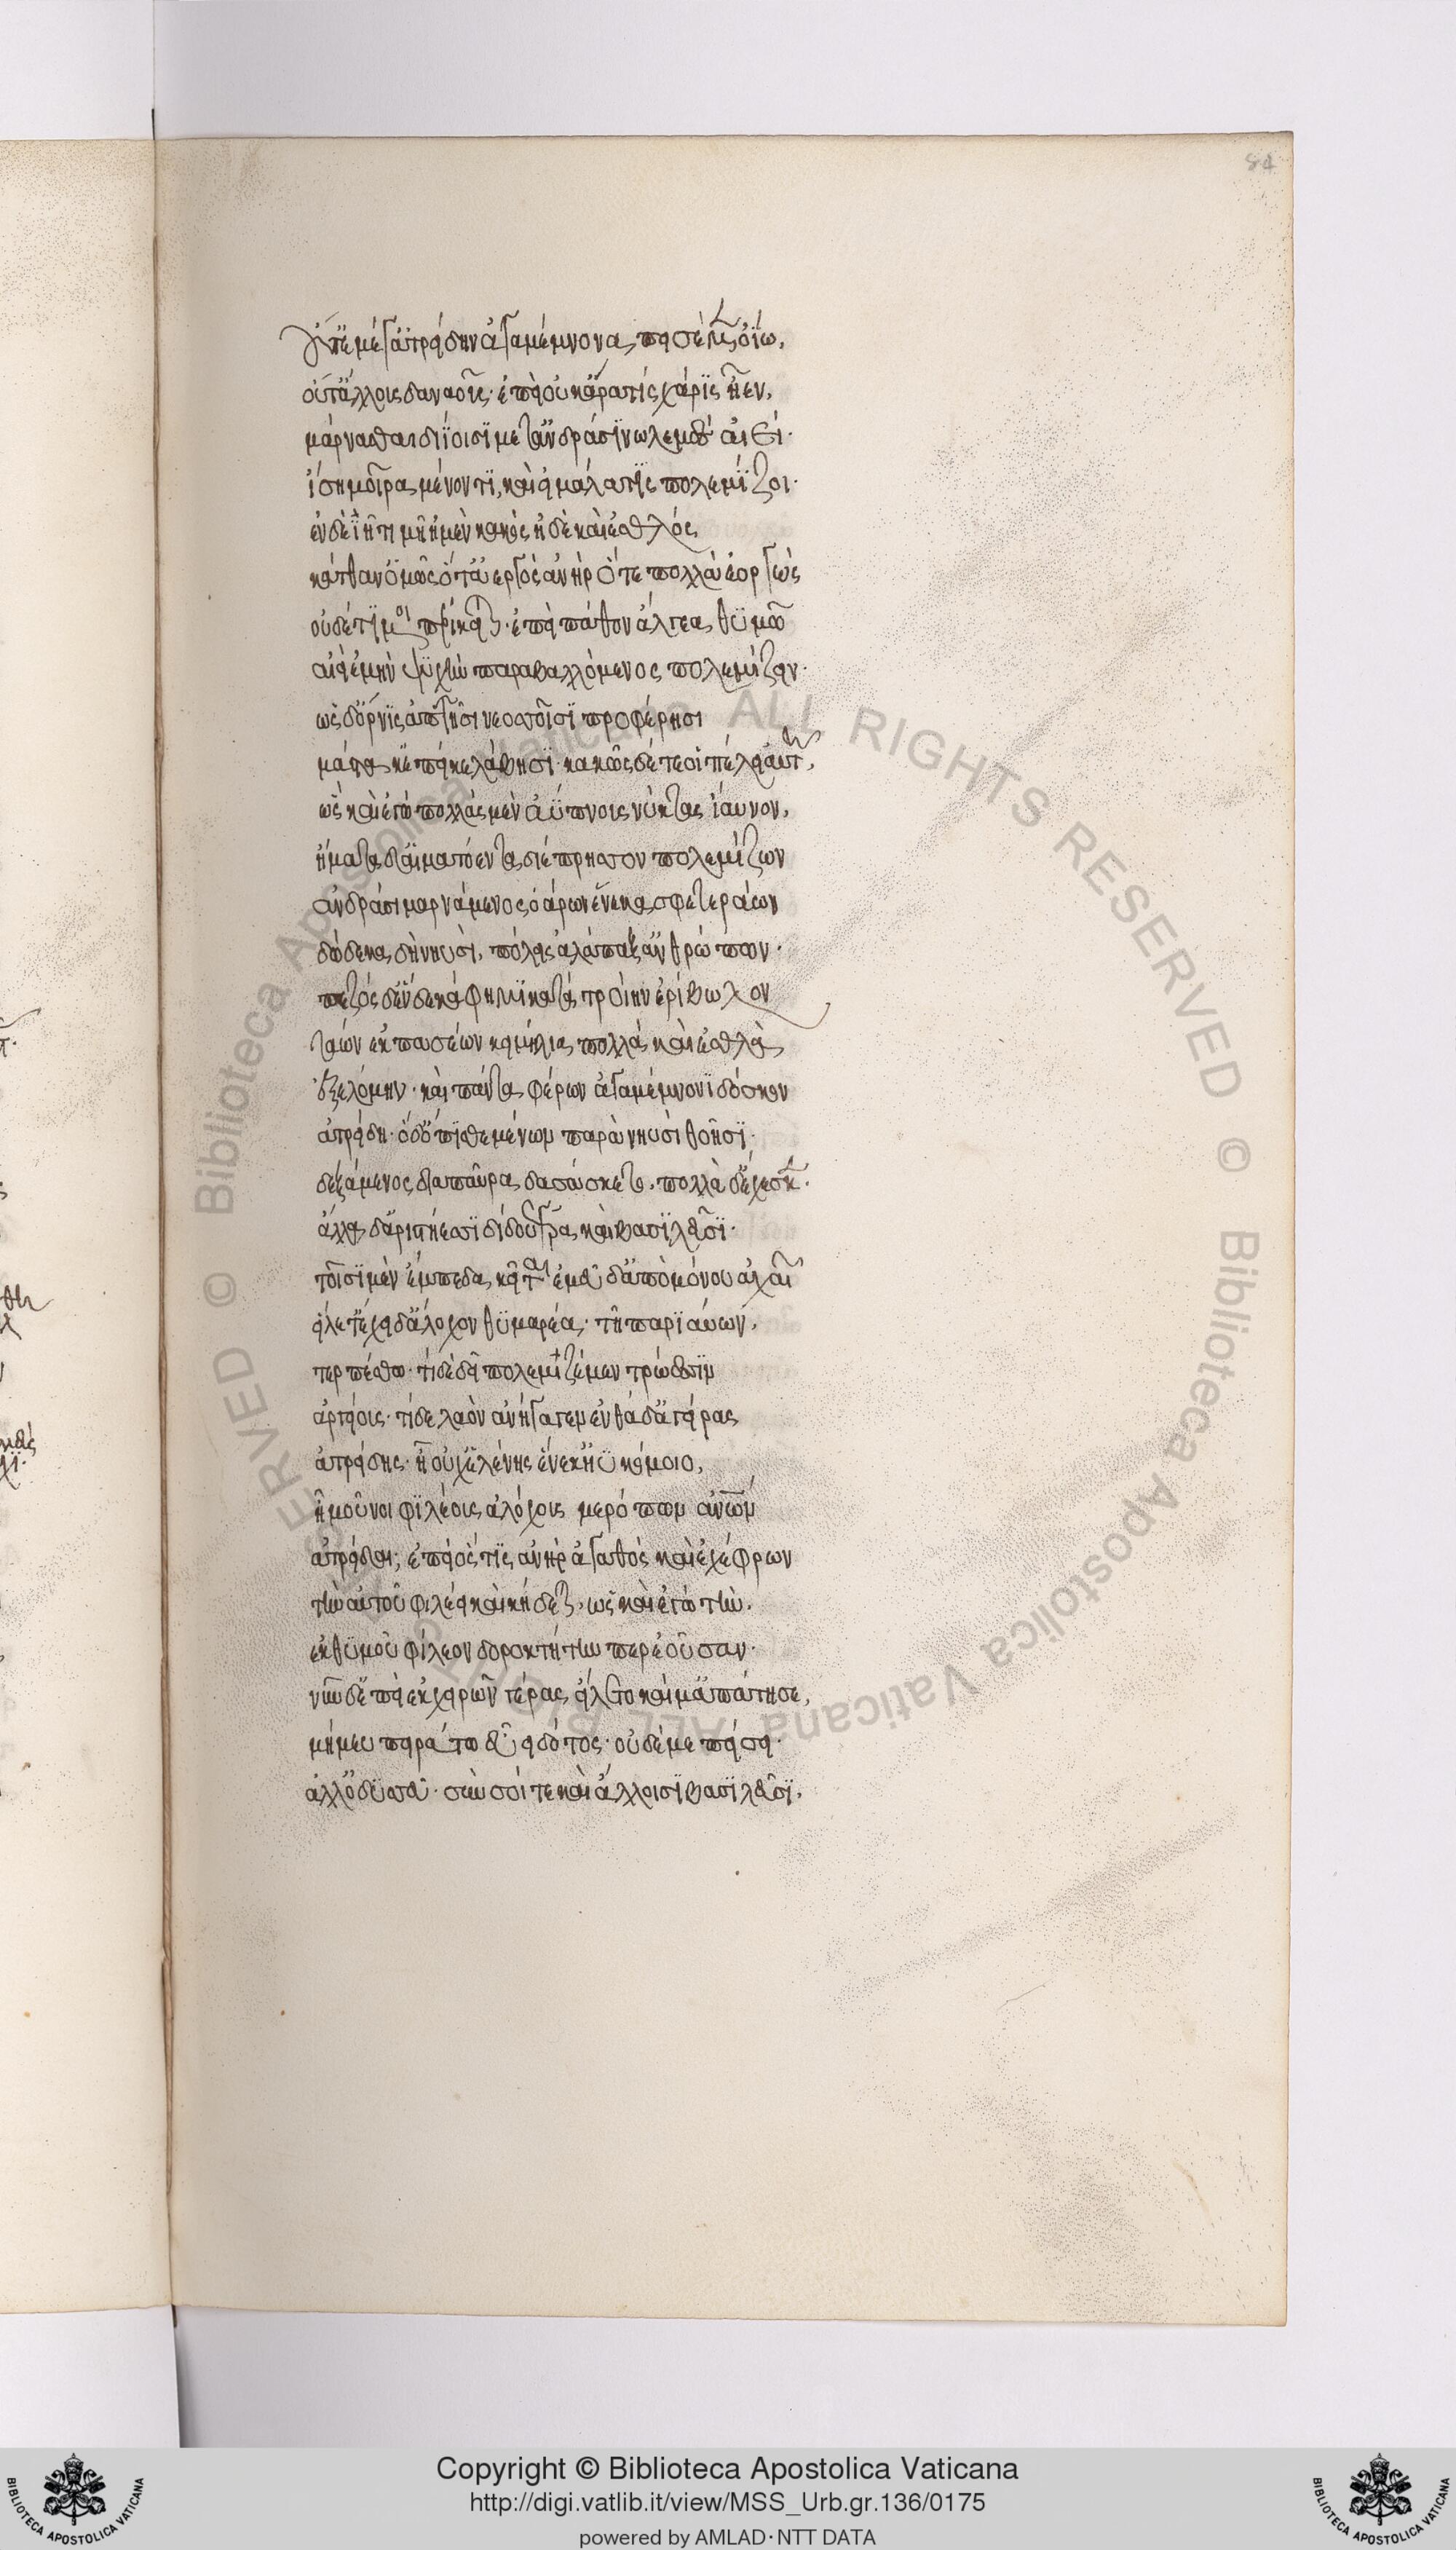 84
οὔτ' ἔμέγ' ἀτρείδην ἀγαμέμνονα πεισέμεν οἴω,
οὔτ' ἄλλοις δαναοῖς· ἐπεὶ οὐκ ἄρα τὶς χάρϊς ἦεν,
μάρνασθαι δηΐοισϊ μετ' ἀνδράσϊ νωλεμὲς αἰεί·
ἴση μοῖρα μένοντϊ, καὶ εἰ μάλα τϊς πολεμίζοι·
ἐν δὲ ϊῆ τιμῆ ἠμὲν κακὸς ἠδὲ καὶ ἐσθλός
κάτθαν' ὅμῶς ὅ τ' ἀεργὸς ἀνὴρ ὅτε πολλὰ ἐοργώς
οὐδέ τϊ μοι περίκειται· ἐπεὶ πάθον ἄλγεα θϋμῶ
αἰεὶ ἐμὴν ψϋχὴν παραβαλλόμενος πολεμίζειν·
ὡς δ' ὄρνϊς ἀπτῆσι νεοσσοῖσϊ προφέρησι
μάστακ' ἐπεί κε λάβησϊ· κακῶς δέ τέ οἱ πέλει αὐτῆ,
ὣς καὶ ἐγὼ πολλὰς μὲν ἀΰπνοις νύκτας ἴαυνον,
ἤματα δ' αἱματόεντα διέπρησσον πολεμίζων
ἀνδράσι μαρνάμενος ὀάρων ἕνεκα σφετεράων
δώδεκα δὴ νηυσὶ, πόλεις ἀλάπαξ' ἀνθρώπων·
πεζὸς δ' ἕνδεκά φημϊ κατὰ τροίην ἐρίβωλον
τάων ἐκ πασέων κειμήλια πολλὰ καὶ ἐσθλὰ
ἐξελόμην· καὶ πάντα φέρων ἀγαμέμνονϊ δόσκον
ἀτρείδη· ὁ δ' ὄπϊσθε μένων παρὰ νηυσὶ θοῆσϊ·
δεξάμενος διαπαῦρα δασάσκετο, πολλὰ δ' ἔχεσκεν·
ἄλλα δ' ἀριστήεσσϊ δίδου γέρα καὶ βασϊλεῦσϊ·
τοῖσϊ μὲν ἔμπεδα κεῖται ἐμεῦ δ' ἄπο μόνου ἀχαιῶν
εἵλετ' ἔχει δ' ἄλοχον θϋμαρέα· τῆ παρϊαύων,
τερπέσθω· τί δὲ δεῖ πολεμιζέμεν τρώεσσϊν
ἀργείοις· τί δε λαὸν ἀνήγαγεν ἐνθάδ' ἀγείρας
ἀτρείδης· ἦ οὐχ' ἑλένης ἕνεκ' ἠϋκόμοιο,
ἦ μοῦνοι φϊλέουσ' ἀλόχους μερόπων ἀνθρώπων
ἀτρεῖδαι; ἐπεὶ ὅς τϊς ἀνὴρ ἀγαθὸς καὶ ἐχέφρων
τὴν αὐτοῦ φιλέει καὶ κήδεται, ὡς καὶ ἐγὼ τὴν.
ἐκ θϋμοῦ φίλεον δορυκτήτην περ ἐοῦσαν·
νῦν δ' ἐπεὶ ἐκ χειρῶν γέρας εἵλετο καί μ' ἀπάτησε,
μή μευ πειράτω εὖ εἰδότος· οὐδέ με πείσει·
ἀλλ' ὀδυσσεῦ· σὺν σοί τε καὶ ἄλλοισϊ βασϊλεῦσϊ,
© Biblioteca Apostolica Vaticana ALL RIGHTS RESERVED © Biblioteca Apostolica Vaticana ALL RIGHTS RESERVED
Copyright © Biblioteca Apostolica Vaticana
http://digi.vatlib.it/view/MSS_Urb.gr.136/0175
powered by AMLAD·NTT DATA
BIBLIOTECA APOSTOLICA VATICANA
BIBLIOTECA APOSTOLICA VATICANA